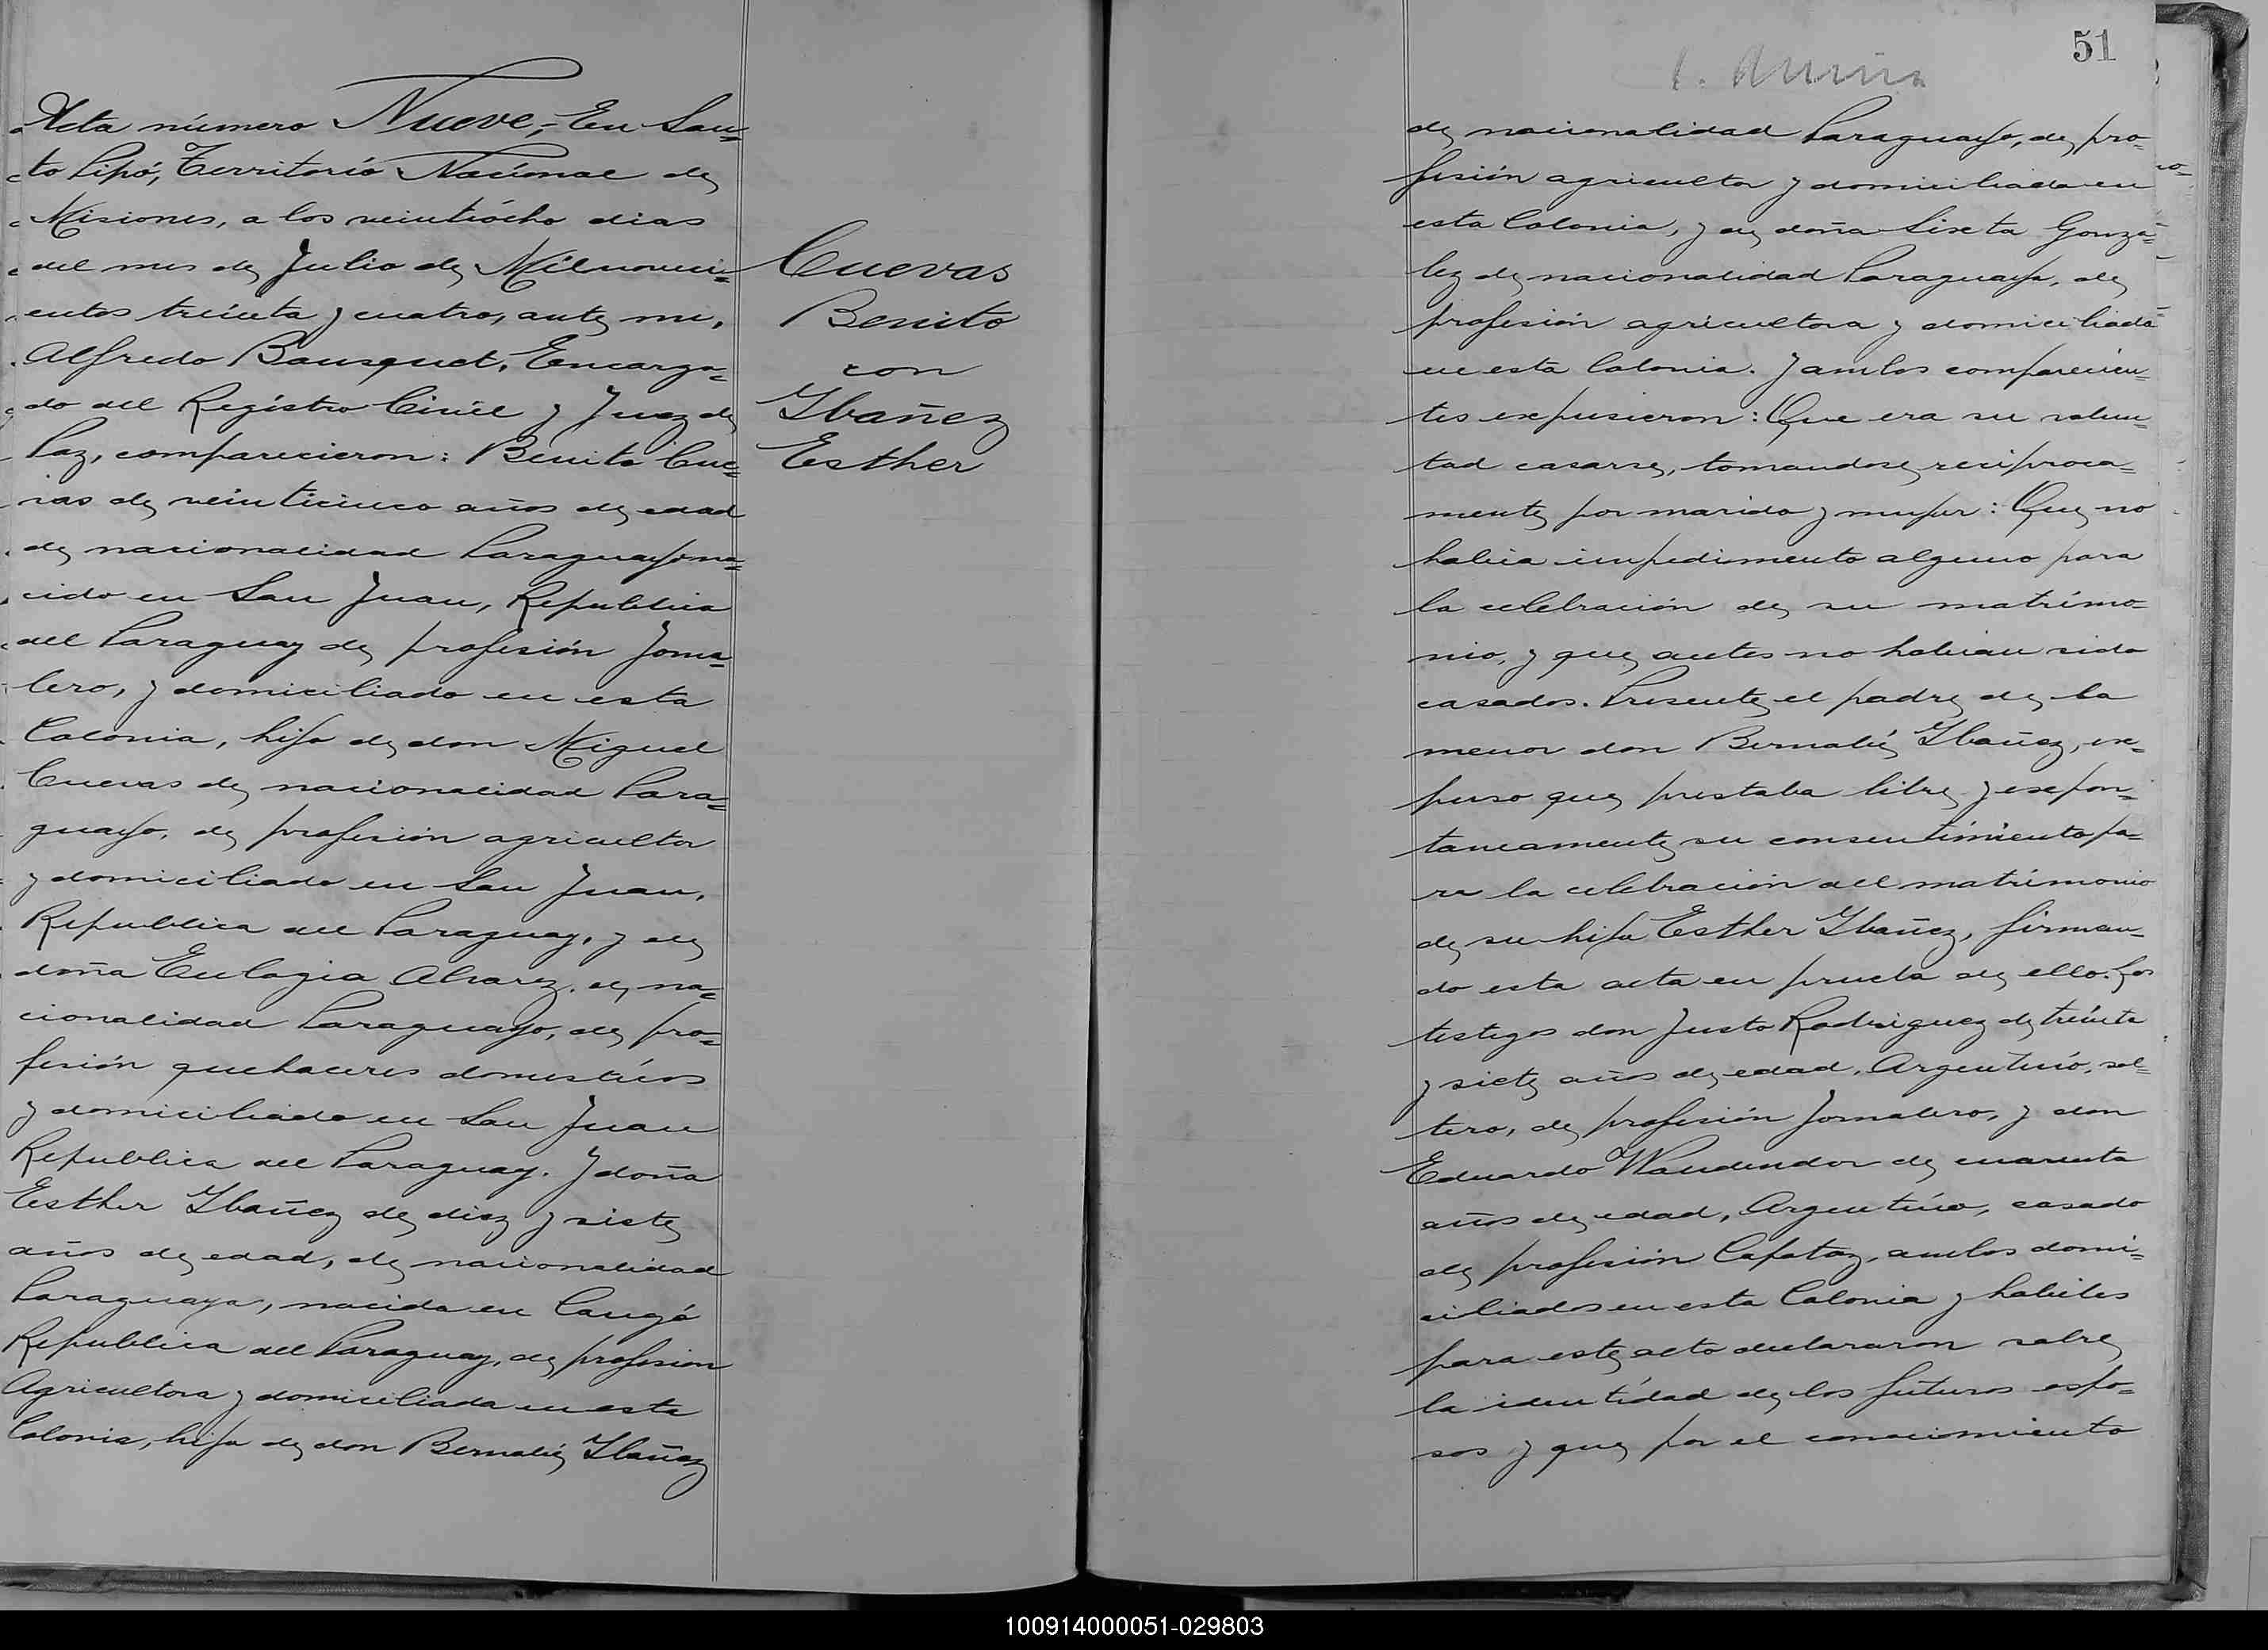 Acta número Nueve,- En San=
to Pipó, Territorio Nacional de
Misiones, a los veintiócho dias
del mes de Julio de Milnoveci=
entos treinta y cuatro, ante mi,
Alfredo Bousquet, Encarga=
do del Registro Civil y Juez de
Paz, comparecieron: Benito Cue=
vas de veinticinco años de edad
de nacionalidad Paraguayo na=
cido en San Juan, Republica
del Paraguay de profesión Jorna=
lero, y domiciliado en esta
Colonia, hijo de don Miguel
Cuevas de nacionalidad Para=
guayo, de profesión agricultor
y domiciliado en San Juan,
Republica del Paraguay, y de
doña Eulogia Alvarez, de na=
cionalidad Paraguayo, de pro=
fesión quehaceres domesticos
y domiciliado en San Juan
Republica del Paraguay. Y doña
Esther Ibañez de diez y siete
años de edad, de nacionalidad
Paraguaya, nacida en Caugó
Republica del Paraguay, de profesion
Agricultora y domiciliada en esta
Colonia, hija de don Bernabé Ibañez
Cuevas
Benito
con
Ibañez
Esther
51
de nacionalidad Paraguayo, de pro=
fesión agricultor y domiciliado en
esta Colonia, y de doña Sixta Gonzá=
lez de nacionalidad Paraguaya, de
profesión agricultora y domiciliada
en esta Colonia. Y ambos comparecien=
tes expusieron: Que era su volun=
tad casarse, tomandose reciproca=
mente por marido y mujer: Que no
habia impedimento alguno para
la celebración de su matrimo=
nio, y que antes no habian sido
casados. Presente el padre de la
menor don Bernabé Ibañez, ex=
puso que prestaba libre y espon=
taneamente su consentimiento pa=
ra la celebración del matrimonio
de su hija Esther Ibañez, firman=
do esta acta en prueba de ello. Los
testigos don Justo Rodriguez de treinta
y siete años de edad, Argentino, sol=
tero, de profesión Jornalero, y don
Eduardo de cuarenta
años de edad, Argentino, casado
de profesión Capataz, ambos domi=
ciliados en esta Colonia y habiles
para este acto declararon sobre
la identidad de los futuros espo=
sos y que por el conocimiento
100914000051-029803